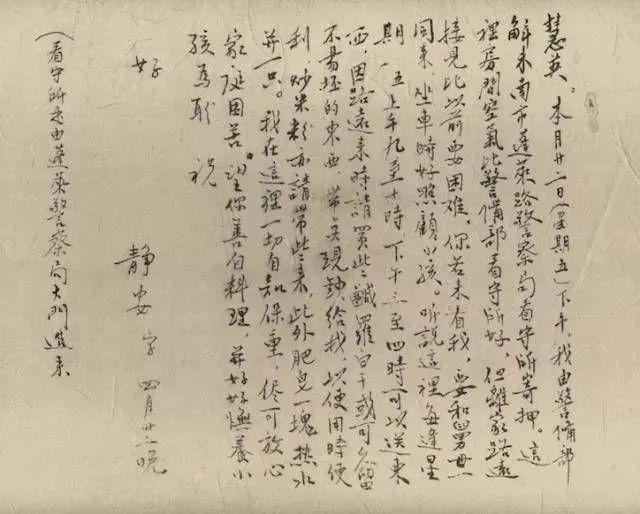 慧英。本月廿二日（星期五）下午，我由警備部
解來南市蓬萊路警察局看守所寄押。這
裡房間空氣比警備部看守所好，但離家路遠
接見比以前要困難，你若來看我，要和舅母
同來，坐車時好照顧小孩。听說這裡每逢星
期一、五上午九至十時下午三至四時可以送東
西，因路遠來時請買些鹹羅白干或可久留
不易坯的東西，帶点現鈔給我，以便用時便
利，炒米粉亦請帶些來，此外肥皂一塊熱水
并一只。我在這裡一切自知保重，儘可放心
家庭困苦。望你善自料理，并好好撫養小
孩為盼　祝
好
靜安字　四月廿二晚
（看守所是由蓬萊警察局大門進來）